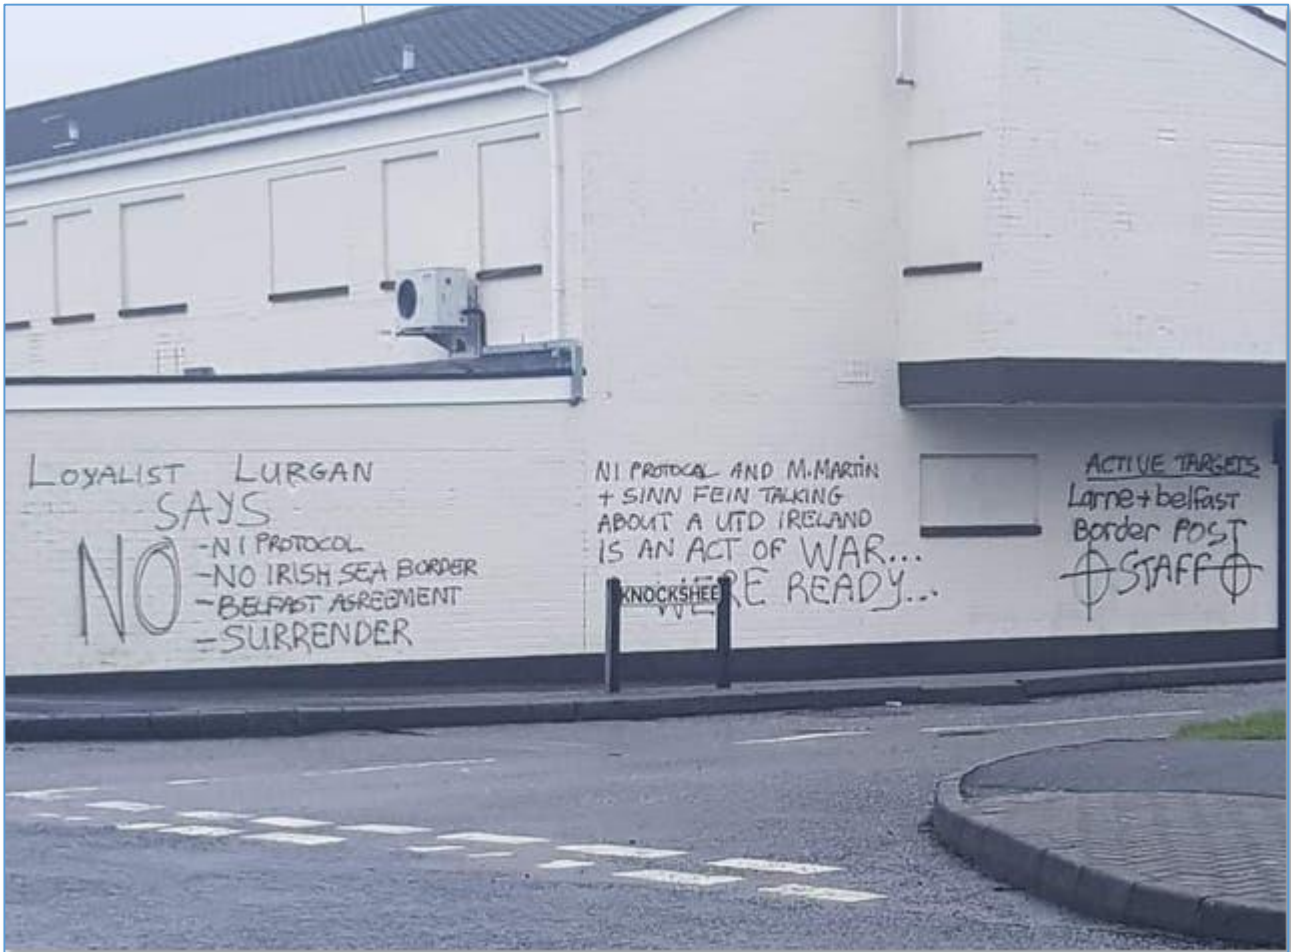 LOYALIST LURGAN
SAYS
NO
- N I PROTOCOL
- NO IRISH SEA BORDER
- BELFAST AGREEMENT
- SURRENDER
NI PROTOCAL AND M.MARTIN
+ SINN FEIN TALKING
ABOUT A UTD IRELAND
IS AN ACT OF WAR...
WERE READY...
KNOCKSHEE
ACTIVE TARGETS
Larne + belfast
Border POST
STAFF